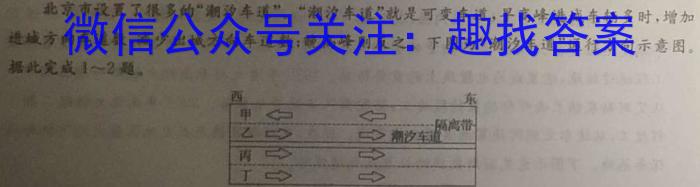 北京市设置了很多的“潮汐车道”，“潮汐车道”就是可变车道，早高峰进城车辆多时，增加
进城方
微信公众号关注：趣找答案
示意图。
据此完成1～2题。
西 东
甲
乙 潮汐车道 隔离带
丙
丁